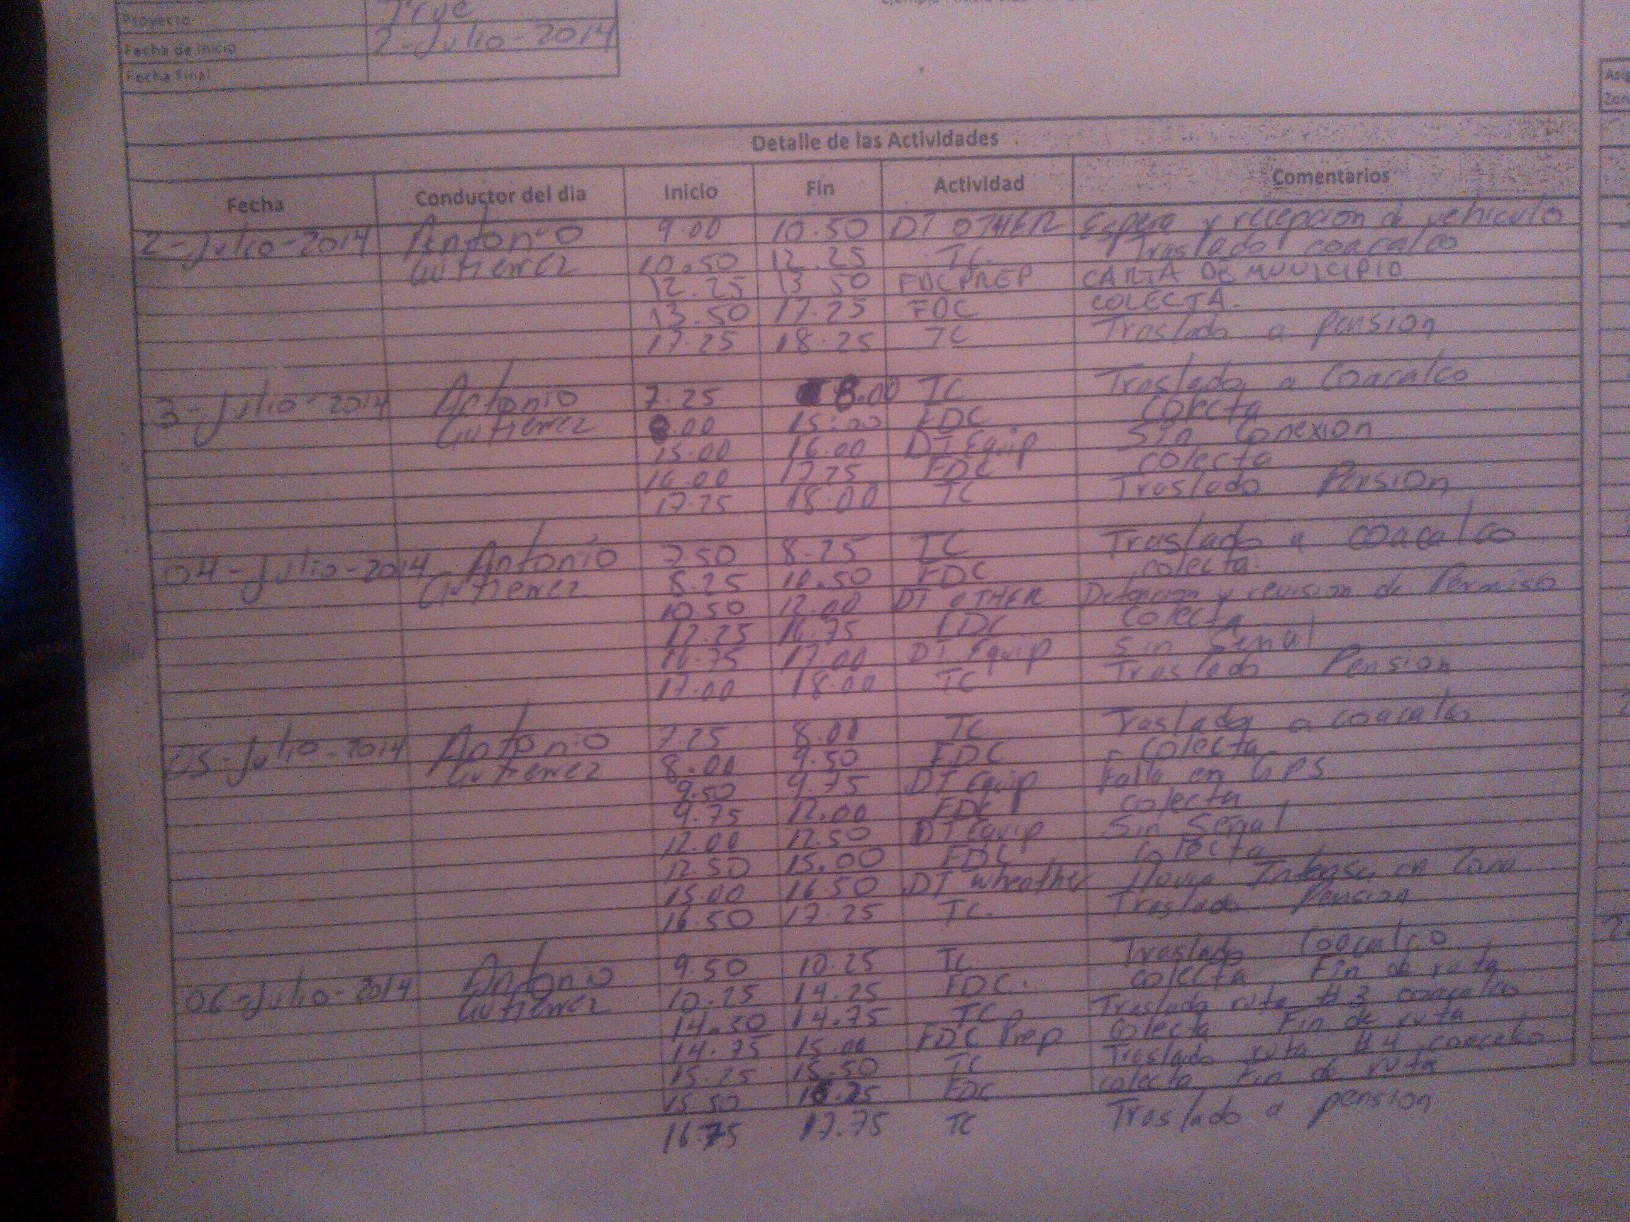 Proyecto True
Fecha de Inicio 2-Julio-2014
Fecha Final
Detalle de las Actividades
Fecha Conductor del dia Inicio Fin Actividad Comentarios
2-Julio-2014 Antonio 9.00 10.50 DT OTHER Espera y recepcion de vehiculo
Gutierrez 10.50 12.25 TC. Traslado coacalco
12.25 13.50 FDCPREP CARTA DE MUNICIPIO
13.50 17.25 FDC COLECTA.
17.25 18.25 TC Traslado a Pension
3-Julio-2014 Antonio 7.25 8.00 TC Traslado a Coacalco
Gutierrez 8.00 15:00 FDC Colecta
15.00 16.00 DT Equip Sin Conexion
16.00 17.25 FDC colecta
17.25 18.00 TC Traslado Pension
04-Julio-2014 Antonio 7.50 8.25 TC Traslado a coacalco
Gutierrez 8.25 10.50 FDC colecta.
10.50 12.00 DT OTHER Detencion y revision de Permiso
12.25 16.75 FDC Colecta
16.75 17.00 DT Equip Sin Señal
17.00 18.00 TC Traslado Pension
05-Julio-2014 Antonio 7.25 8.00 TC Traslado a coacalco
Gutierrez 8.00 9.50 FDC Colecta
9.50 9.75 DT Equip Falla en GPS
9.75 12.00 FDC colecta
12.00 12.50 DT Equip Sin Señal
12.50 15.00 FDC colecta
15.00 16.50 DT Wheather lluvia Intensa en Zona
16.50 17.25 TC. Traslado Pension
06-Julio-2014 Antonio 9.50 10.25 TC Traslado Coacalco
Gutierrez 10.25 14.25 FDC. colecta Fin de ruta
14.50 14.75 TC Traslado ruta #3 coacalco
14.75 15.00 FDC Prep Colecta Fin de ruta
15.25 15.50 TC Traslado ruta #4 coacalco
15.50 16.25 FDC colecta Fin de ruta
16.75 17.75 TC Traslado a pension